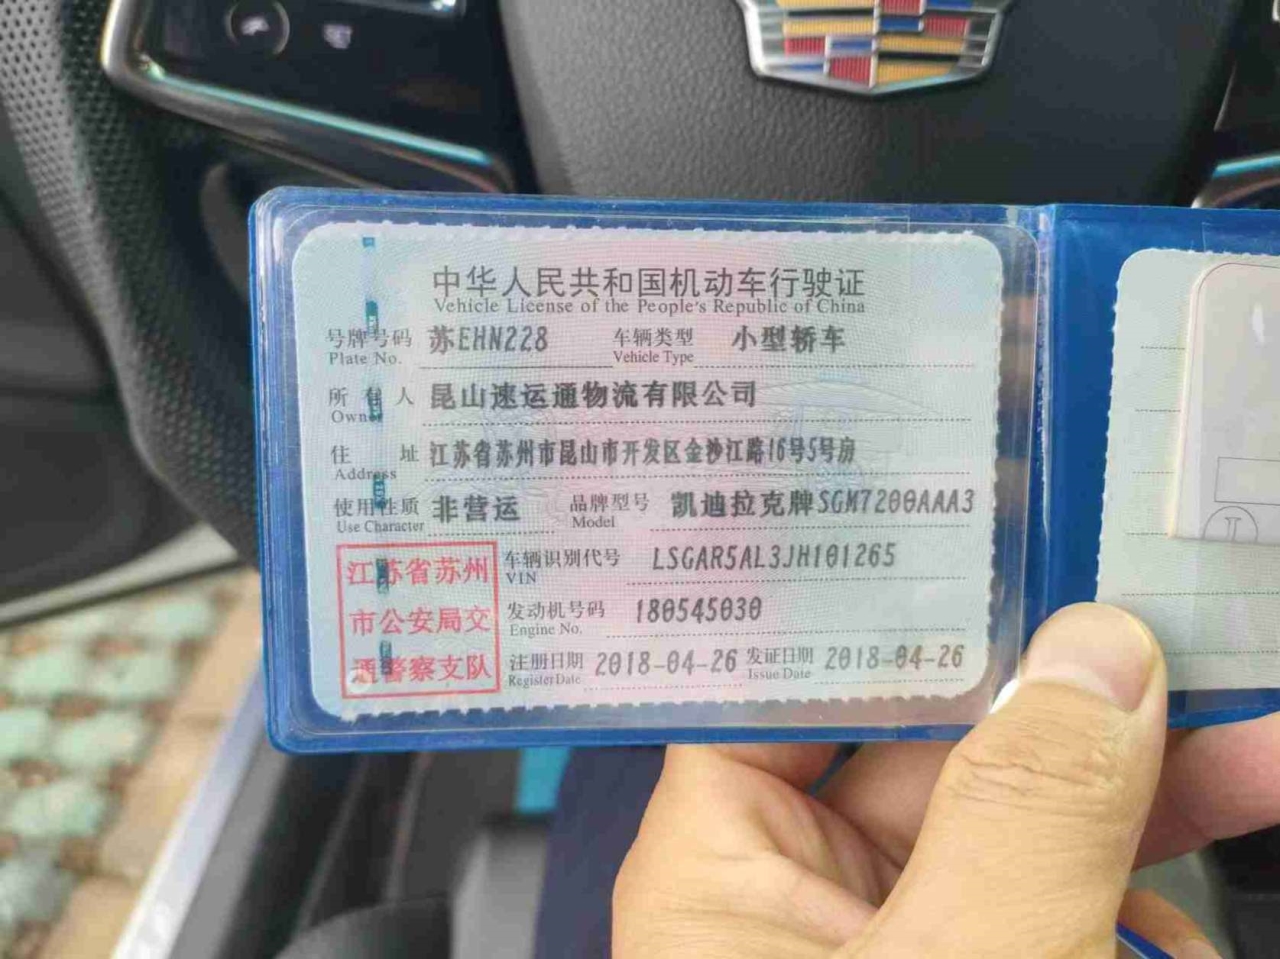 中华人民共和国机动车行驶证
Vehicle License of the People's Republic of China
号牌号码 苏EHN228 车辆类型 小型轿车
Plate No. Vehicle Type
所有人 昆山速运通物流有限公司
Owner
住址 江苏省苏州市昆山市开发区金沙江路16号5号房
Address
使用性质 非营运 品牌型号 凯迪拉克牌SGM7200AAA3
Use Character Model
车辆识别代号 LSGAR5AL3JH101265
VIN
发动机号码 180545030
Engine No.
注册日期 2018-04-26 发证日期 2018-04-26
Register Date Issue Date
江苏省苏州
市公安局交
通警察支队